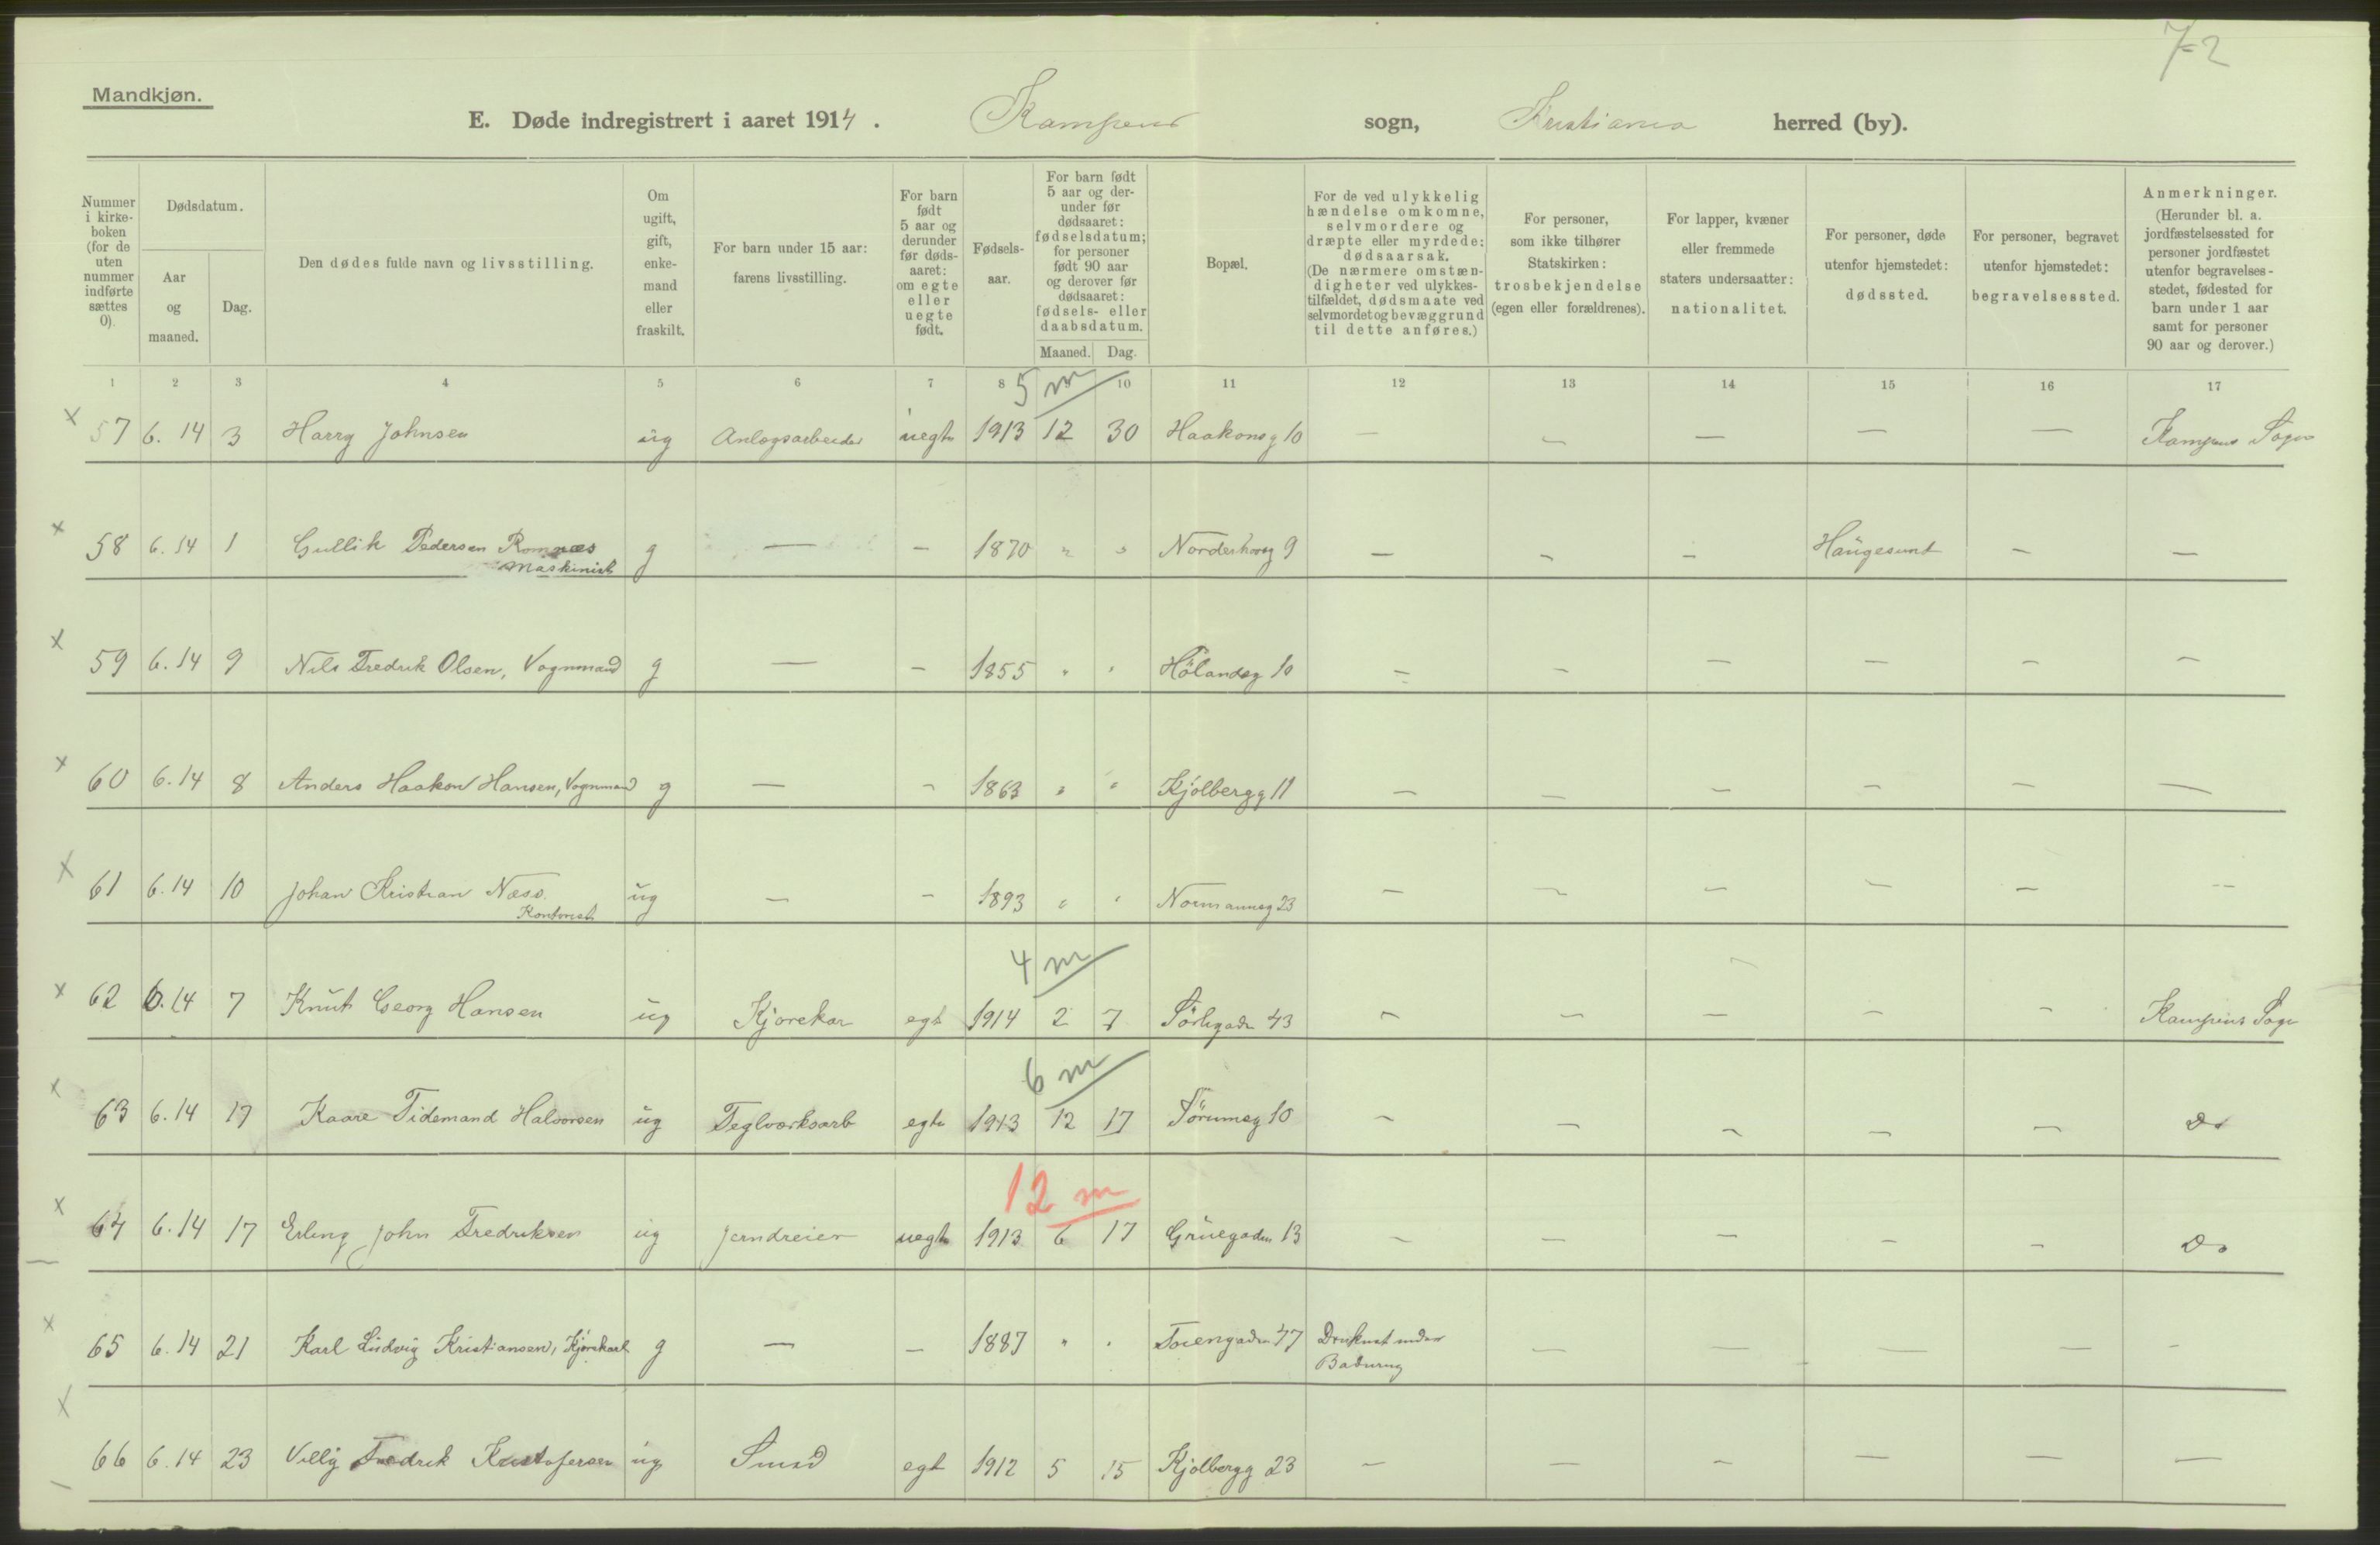 7-2
Mandkjøn.
E. Døde indregistrert i aaret 1914. Kampens sogn, Kristiania herred (by).
Nummer i kirke-boken (for de uten nummer indførte sættes 0).
Dødsdatum.
Aar og maaned.
Dag.
Den dødes fulde navn og livsstilling.
Om ugift, gift, enke-mand eller fraskilt.
For barn under 15 aar: farens livsstilling.
For barn født 5 aar og derunder før døds-aaret: om egte eller uegte født.
Fødsels-aar.
For barn født 5 aar og der-under før dødsaaret: fødselsdatum; for personer født 90 aar og derover før dødsaaret: fødsels- eller daabsdatum.
Maaned. Dag.
Bopæl.
For de ved ulykkelig hændelse omkomne, selvmordere og dræpte eller myrdede: dødsaarsak. (De nærmere omstæn-digheter ved ulykkes-tilfældet, dødsmaate ved selvmordet og bevæggrund til dette anføres.)
For personer, som ikke tilhører Statskirken: trosbekjendelse (egen eller forældrenes).
For lapper, kvæner eller fremmede staters undersaatter: nationalitet.
For personer, døde utenfor hjemstedet: dødssted.
For personer, begravet utenfor hjemstedet: begravelsessted.
Anmerkninger. (Herunder bl. a. jordfæstelsessted for personer jordfæstet utenfor begravelses-stedet, fødested for barn under 1 aar samt for personer 90 aar og derover.)
1 2 3 4 5 6 7 8 9 10 11 12 13 14 15 16 17
5 m
x 57 6. 14 3 Harry Johnsen ug Anlægsarbeider uegte 1913 12 30 Haakonsg 10 — — — — — Kampens Sogn
x 58 6. 14 1 Gullik Pedersen Romnæs g — — 1870 " " Norderhovg 9 — — — Haugesund — —
Maskinist
x 59 6. 14 9 Nils Fredrik Olsen, Vognmand g — — 1855 " " Hølandsg 10 — — — — — —
x 60 6. 14 8 Anders Haakon Hansen, Vognmand g — — 1863 " " Kjølbergg 11 — — — — — —
x 61 6. 14 10 Johan Kristian Næss ug — — 1893 " " Normannsg 23 — — — — — —
Kontorist
4 m
x 62 6. 14 7 Knut Georg Hansen ug Kjørekar egte 1914 2 7 Sørligadn 43 — — — — — Kampens Sogn
6 m
x 63 6. 14 17 Kaare Tidemand Halvorsen ug Teglverksarb egte 1913 12 17 Sørumsg 10 — — — — — Do
12 m
x 64 6. 14 17 Erling John Fredriksen ug Jerndreier uegte 1913 6 17 Grüegaden 13 — — — — — Do
x 65 6. 14 21 Karl Ludvig Kristiansen, Kjørekarl g — — 1887 " " Toiengaden 47 Druknet under — — — — —
Badning
x 66 6. 14 23 Villy Fredrik Kristofersen ug Smed egte 1912 5 15 Kjølbergg 23 — — — — — —